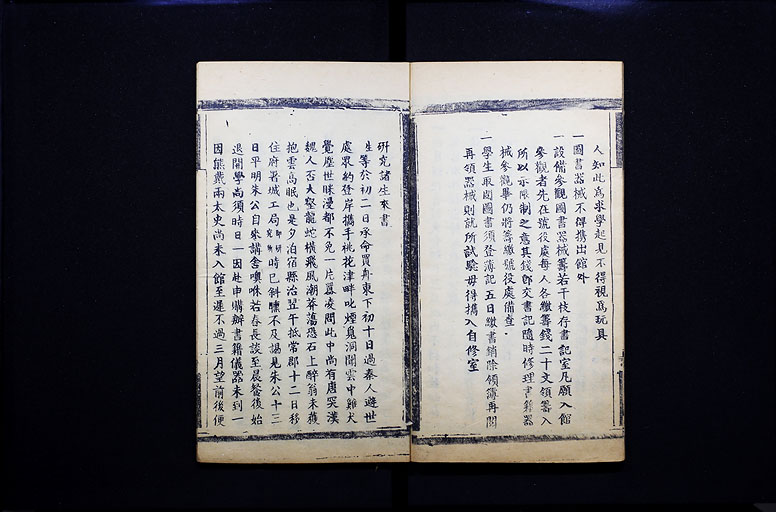 人知此為求學起見不得視為玩具
一圖書器械不得攜出館外
一設備參觀圖書器械籌若干枝存書記室凡願入館
參觀者先在號役處每人各繳籌錢二十文領籌入
所以示限制之意其錢即交書記隨時修理書籍器
械參觀畢仍將籌繳號役處備查
一學生取閱圖書須登簿記五日繳書銷除領簿再閱
再領器械則就所試驗毋得攜入自修室
研究諸生來書
生等於初二日承命買舟東下初十日過秦人避世
處眾約登岸攜手桃花津畔叱煙覓洞聞雲中雞犬
覺塵世睽漫都不免一片囂凌問此中尚有唐突漢
魏人否大壑龍蛇橫飛風潮莽蕩恐石上醉翁未獲
抱雲高眠也是夕泊宿縣治翌午抵常郡十二日移
住府署城工局即研究所時已斜曛不及謁見朱公十三
日平明朱公自來講舍噢咻若春長談至晨鏊復始
退開學尚須時日一因赴申購辦書籍儀器未到一
因熊戴兩太史尚未入館至遲不過三月望前後便